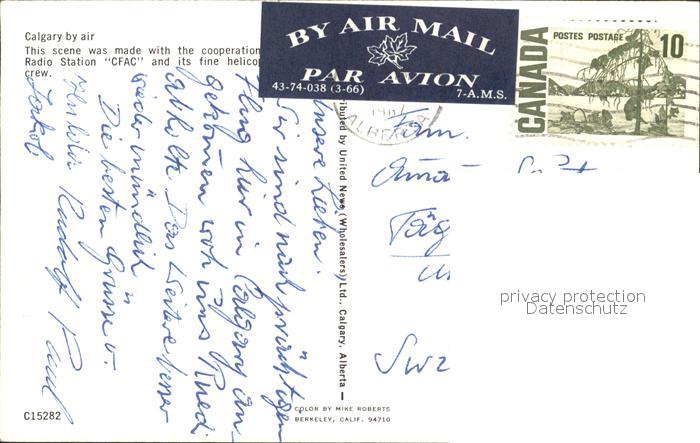 Calgary by air
This scene was made with the cooperation
Radio Station "CFAC" and its fine helicop
crew.
BY AIR MAIL
PAR AVION
43-74-038 (3-66)
7-A.M.S.
CANADA
POSTES POSTAGE
10
ALBERTA
Unsere Lieben.
Wir sind nach prächtigem
Flug hier in Calgary an-
gekommen wo uns Ruedi
abholte. Das Weitere besser
wieder mündlich
Die besten Grüsse v.
Rudolf Paul
Jakob
ributed by United News (Wholesalers) Ltd., Calgary, Alberta
Fam.
Täg
Swz
privacy protection
Datenschutz
C15282
COLOR BY MIKE ROBERTS
BERKELEY, CALIF. 94710